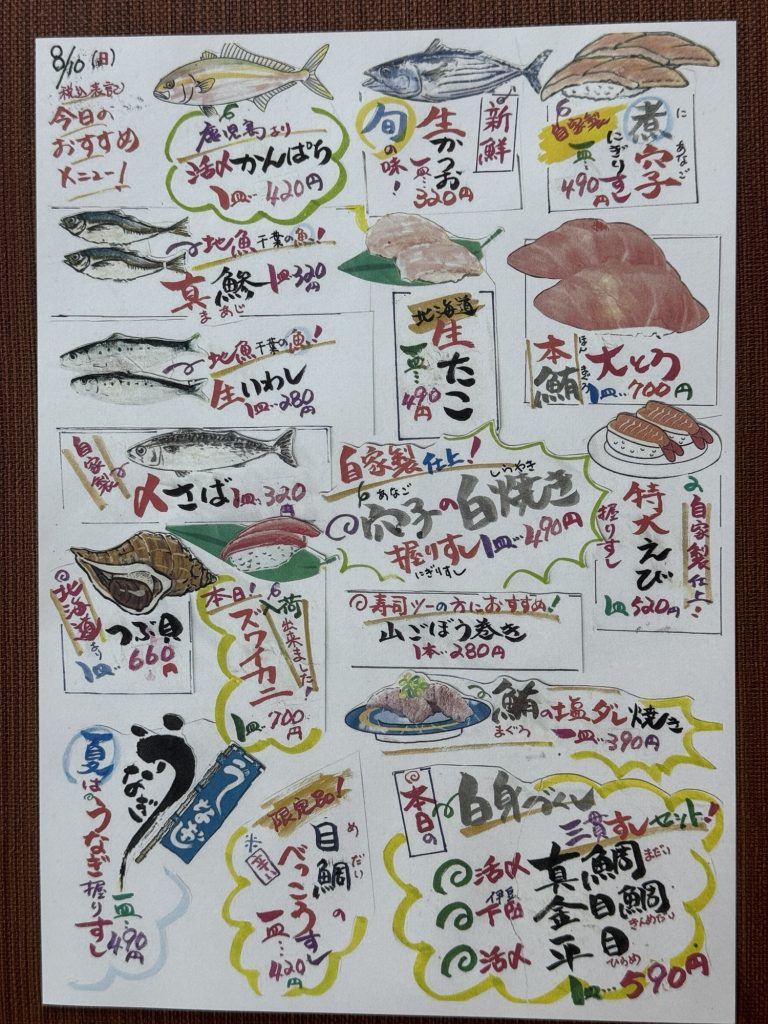 8/10(日)
税込表記
今日の
おすすめ
メニュー!
鹿児島より
活〆かんぱち
1皿…420円
新鮮
旬の味!
生かつお
一皿…320円
煮穴子
に あなご
にぎりすし
自家製
一皿…490円
地魚 千葉の魚!
真鯵 1皿320円
まあじ
地魚 千葉の魚!
生いわし
1皿…280円
北海道
生たこ
一皿…490円
本鮪
ほん まぐろ
大とろ
1皿…700円
自家製
〆さば 1皿…320円
自家製仕上!
あなご しらやき
穴子の白焼き
握りすし 1皿…490円
にぎりすし
自家製仕上!
特大えび
握りすし
1皿520円
北海道より
つぶ貝
1皿…660円
本日!
入荷出来ました!
ズワイカニ
1皿…700円
寿司ツーの方におすすめ!
山ごぼう巻き
1本…280円
鮪の塩ダレ焼き
まぐろ
一皿…390円
うなぎ
うなぎ
夏はうなぎ握りすし
一皿…490円
限定品!
目鯛の
めだい
べっこうすし
※辛い
一皿…420円
本日の
白身づくし
三貫すしセット!
活〆 真鯛 まだい
伊豆
下田 金目鯛 きんめだい
活〆 平目 ひらめ
1皿…590円